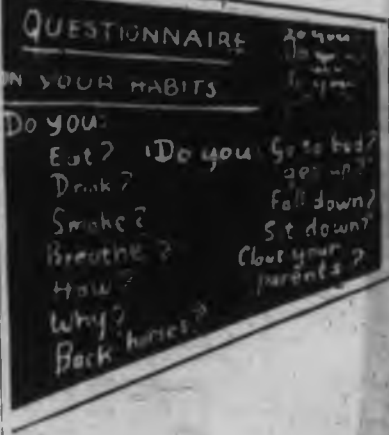 QUESTIONNAIRE
N YOUR HABITS
Do you:
Eat?
Drink?
Smoke?
Breathe?
How?
Why?
Back horses?
Do you
Go to bed?
get up?
Fall down?
Sit down?
Clout your
parents?
Do you